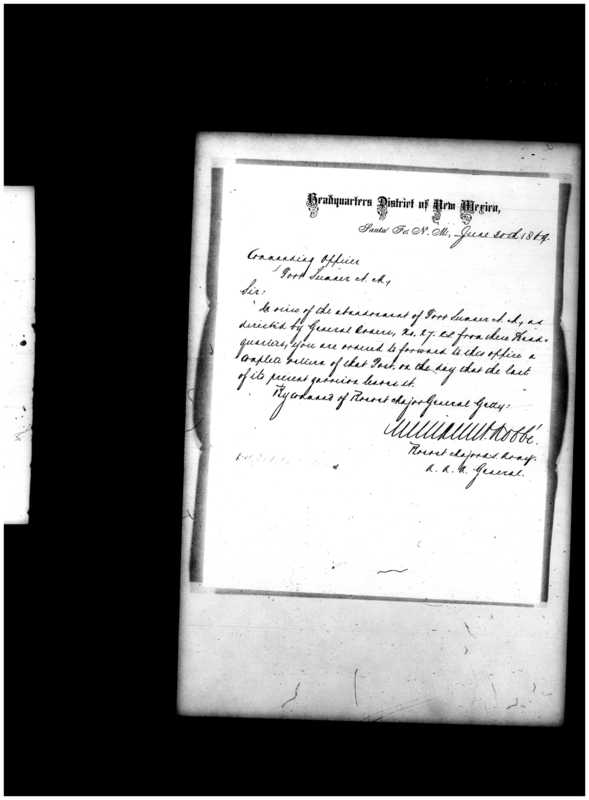 Headquarters District of New Mexico,
Santa Fé, N. M., June 20th 1869.
Commanding Officer
Fort Sumner N. M.,
Sir:
In view of the abandonment of Fort Sumner N. M., as
directed by General Orders, No. 27, c.s. from these Head-
quarters, you are ordered to forward to this office a
complete return of that Post, on the day that the last
of its present garrison leaves it.
By command of Brevet Major General Getty:
Brevet Major U.S. Army.
A. A. A. General.